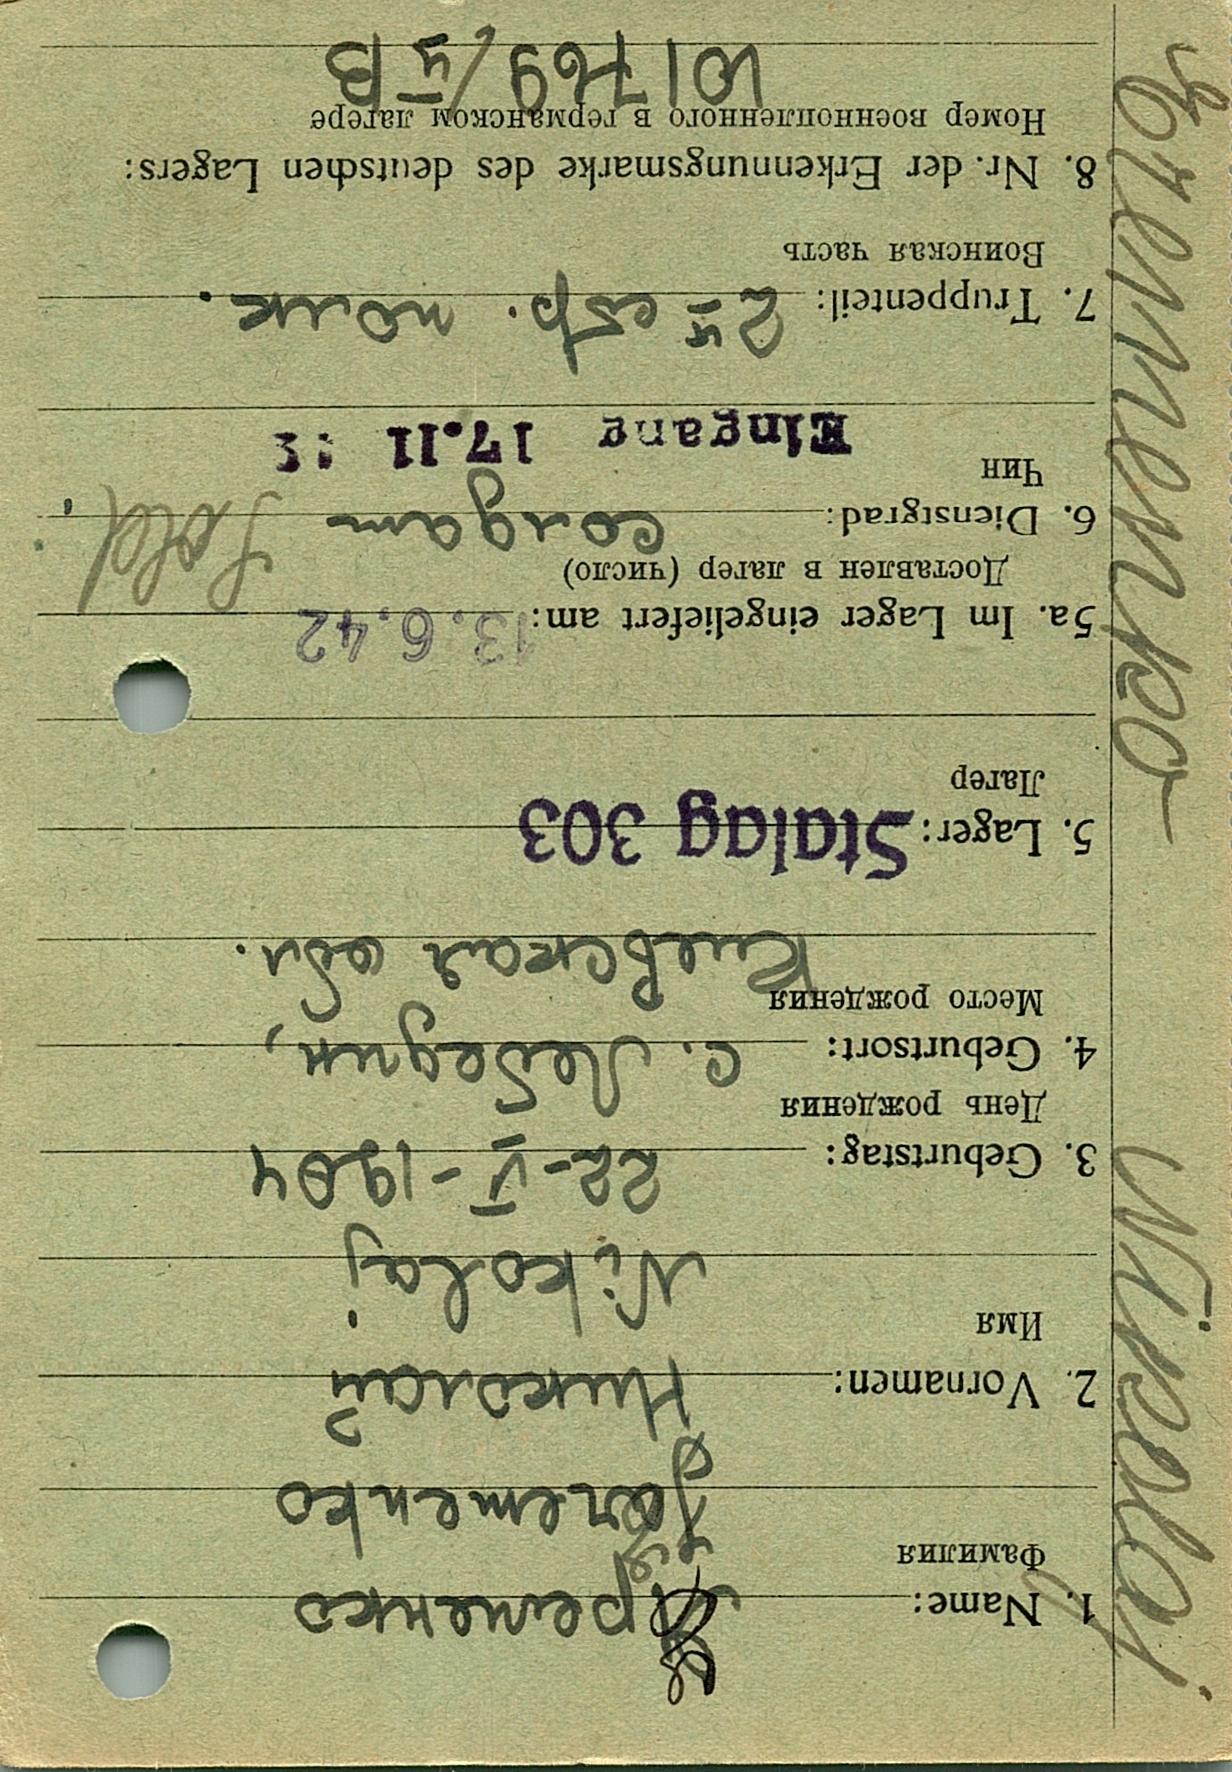 1. Name: Еременко
Фамилия
Jeremenko
2. Vornamen: Николай
Имя
Nikolaj
3. Geburtstag: 22-V-1904
День рождения
4. Geburtsort: с. Лебедин,
Место рождения
Киевская обл.
5. Lager: Stalag 303
Лагер
5a. Im Lager eingeliefert am: 13.6.42
Доставлен в лагер (число)
6. Dienstgrad: солдат Sold.
Чин
Eingang 17.11
7. Truppenteil: 2й стр. полк.
Воинская часть
8. Nr. der Erkennungsmarke des deutschen Lagers:
Номер военнопленного в германском лагере
101769/VB
Nikolaj